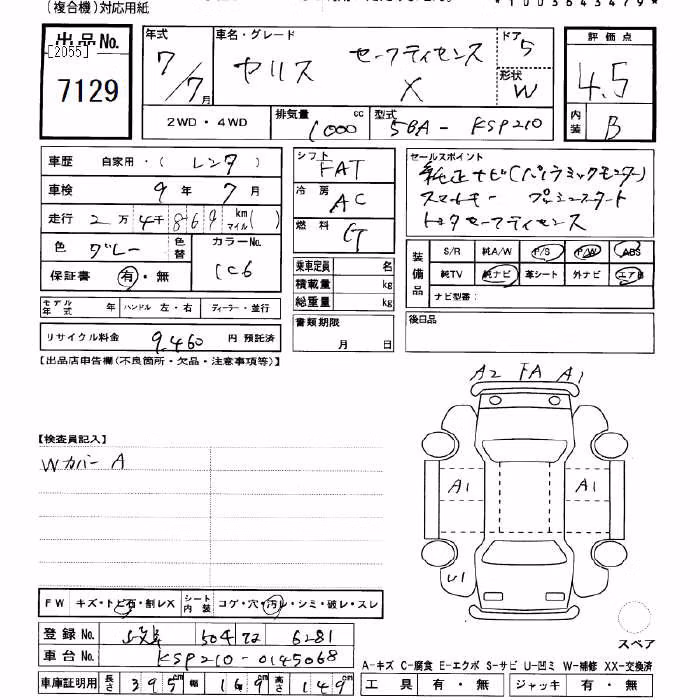 (複合機)対応用紙
*1003643479*
出品No.
[2055]
7129
年式 7/7月
車名・グレード
ヤリス セーフティセンス X
ドア 5
形状 W
評価点
4.5
内装 B
2WD・4WD
排気量 1000 cc
型式 5BA-KSP210
車歴 自家用・(レンタ)
車検 9年7月
走行 2万4千869 km マイル( )
色 グレー
色替
カラーNo. 1C6
保証書 有・無
モデル年式 年 ハンドル 左・右 ディーラー・並行
リサイクル料金 9,460 円 預託済
シフト FAT
冷房 AC
燃料 G
乗車定員 名
積載量 kg
総重量 kg
書類期限
月 日
セールスポイント
純正ナビ(パノラミックモニター)
スマートキー プッシュスタート
トヨタセーフティセンス
装備品 S/R 純A/W P/S P/W ABS
純TV 純ナビ 革シート 外ナビ エアB
ナビ型番:
後日品
【出品店申告欄(不良箇所・欠品・注意事項等)】
A2 FA A1
【検査員記入】
Wカバー A
A1 A1
U1
スペア
FW キズ・トビ石・割レX シート内装 コゲ・穴・汚レ・シミ・破レ・スレ
登録No. 504 わ 6281
車台No. KSP210-0145068
車庫証明用 長さ 395cm 幅 169cm 高さ 149cm
A-キズ C-腐食 E-エクボ S-サビ U-凹ミ W-補修 XX-交換済
工具 有・無 ジャッキ 有・無